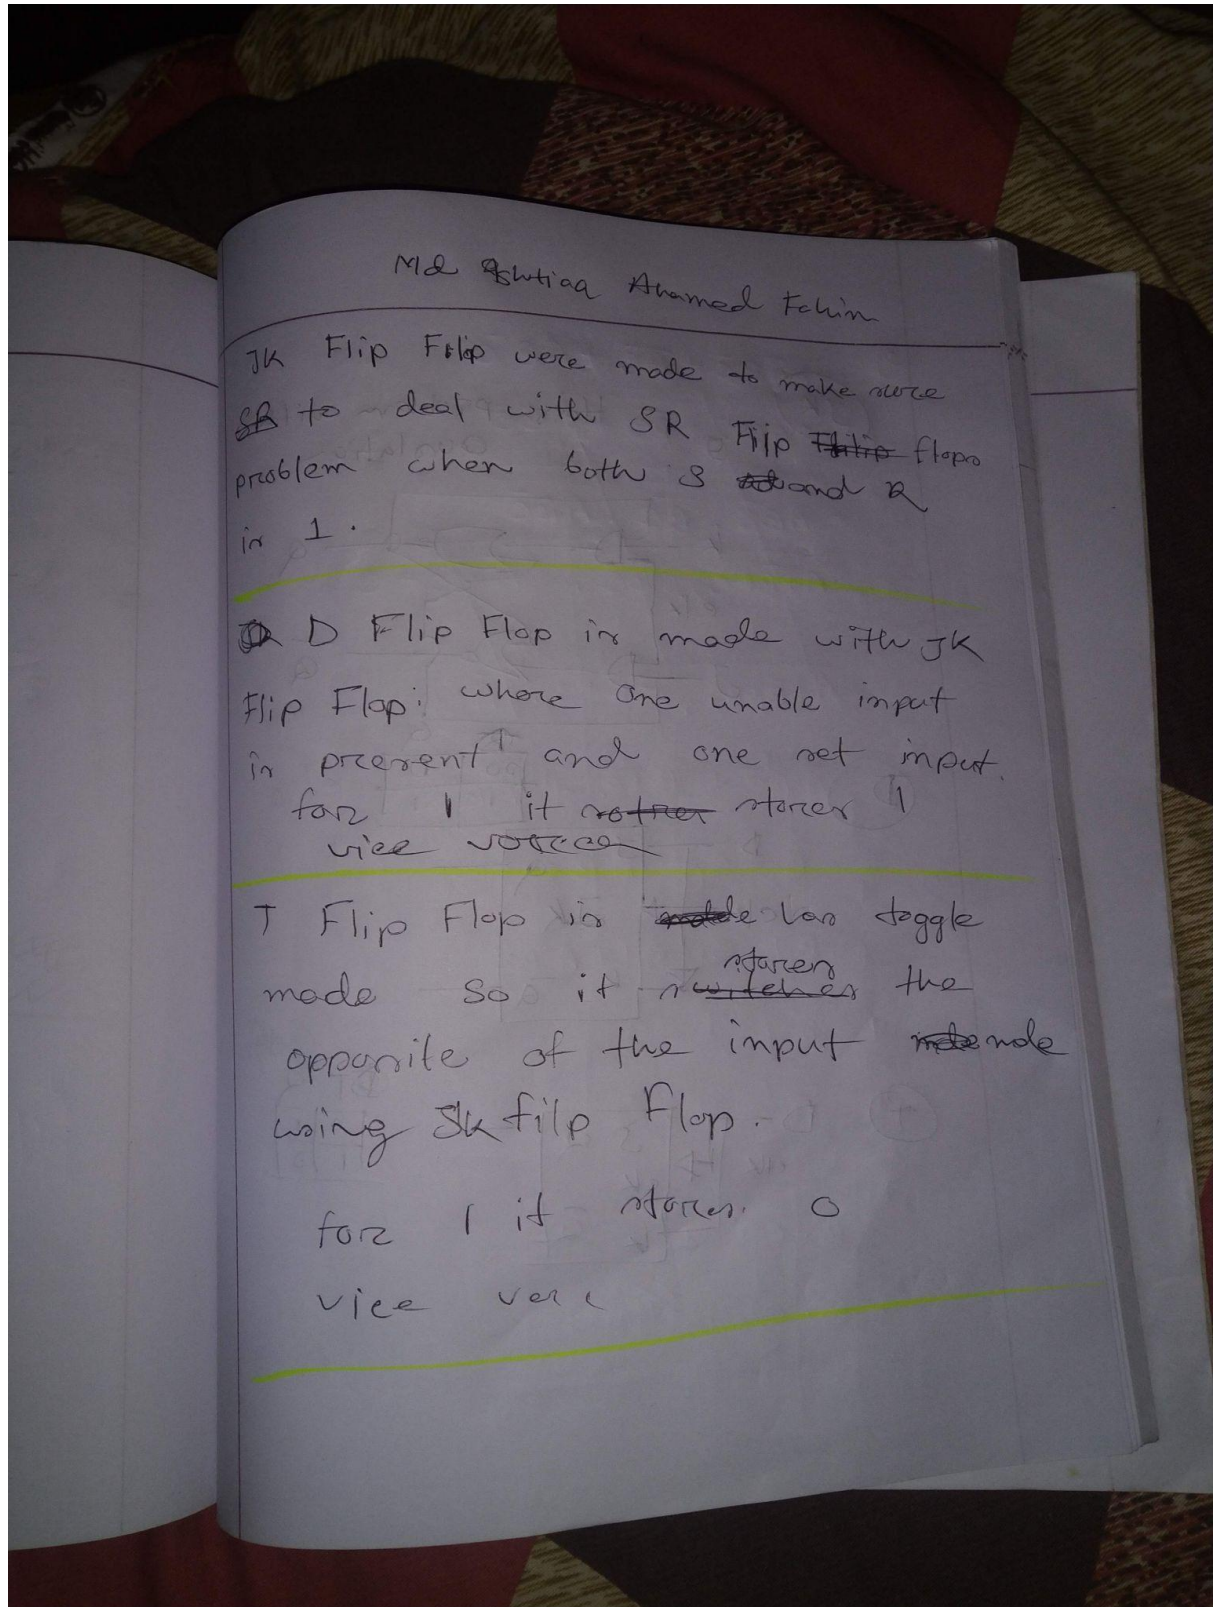 Md Ishtiaq Ahamed Fahim
JK Flip Flop were made to make sure
SR to deal with SR Flip flops
problem when both S and R
is 1.
D Flip Flop is made with JK
Flip Flop: where one unable input
is present and one set input.
for 1 it stores 1
vice
T Flip Flop is has toggle
made so it stores the
opposite of the input
using Jk filp Flop.
for 1 it stores. 0
vice